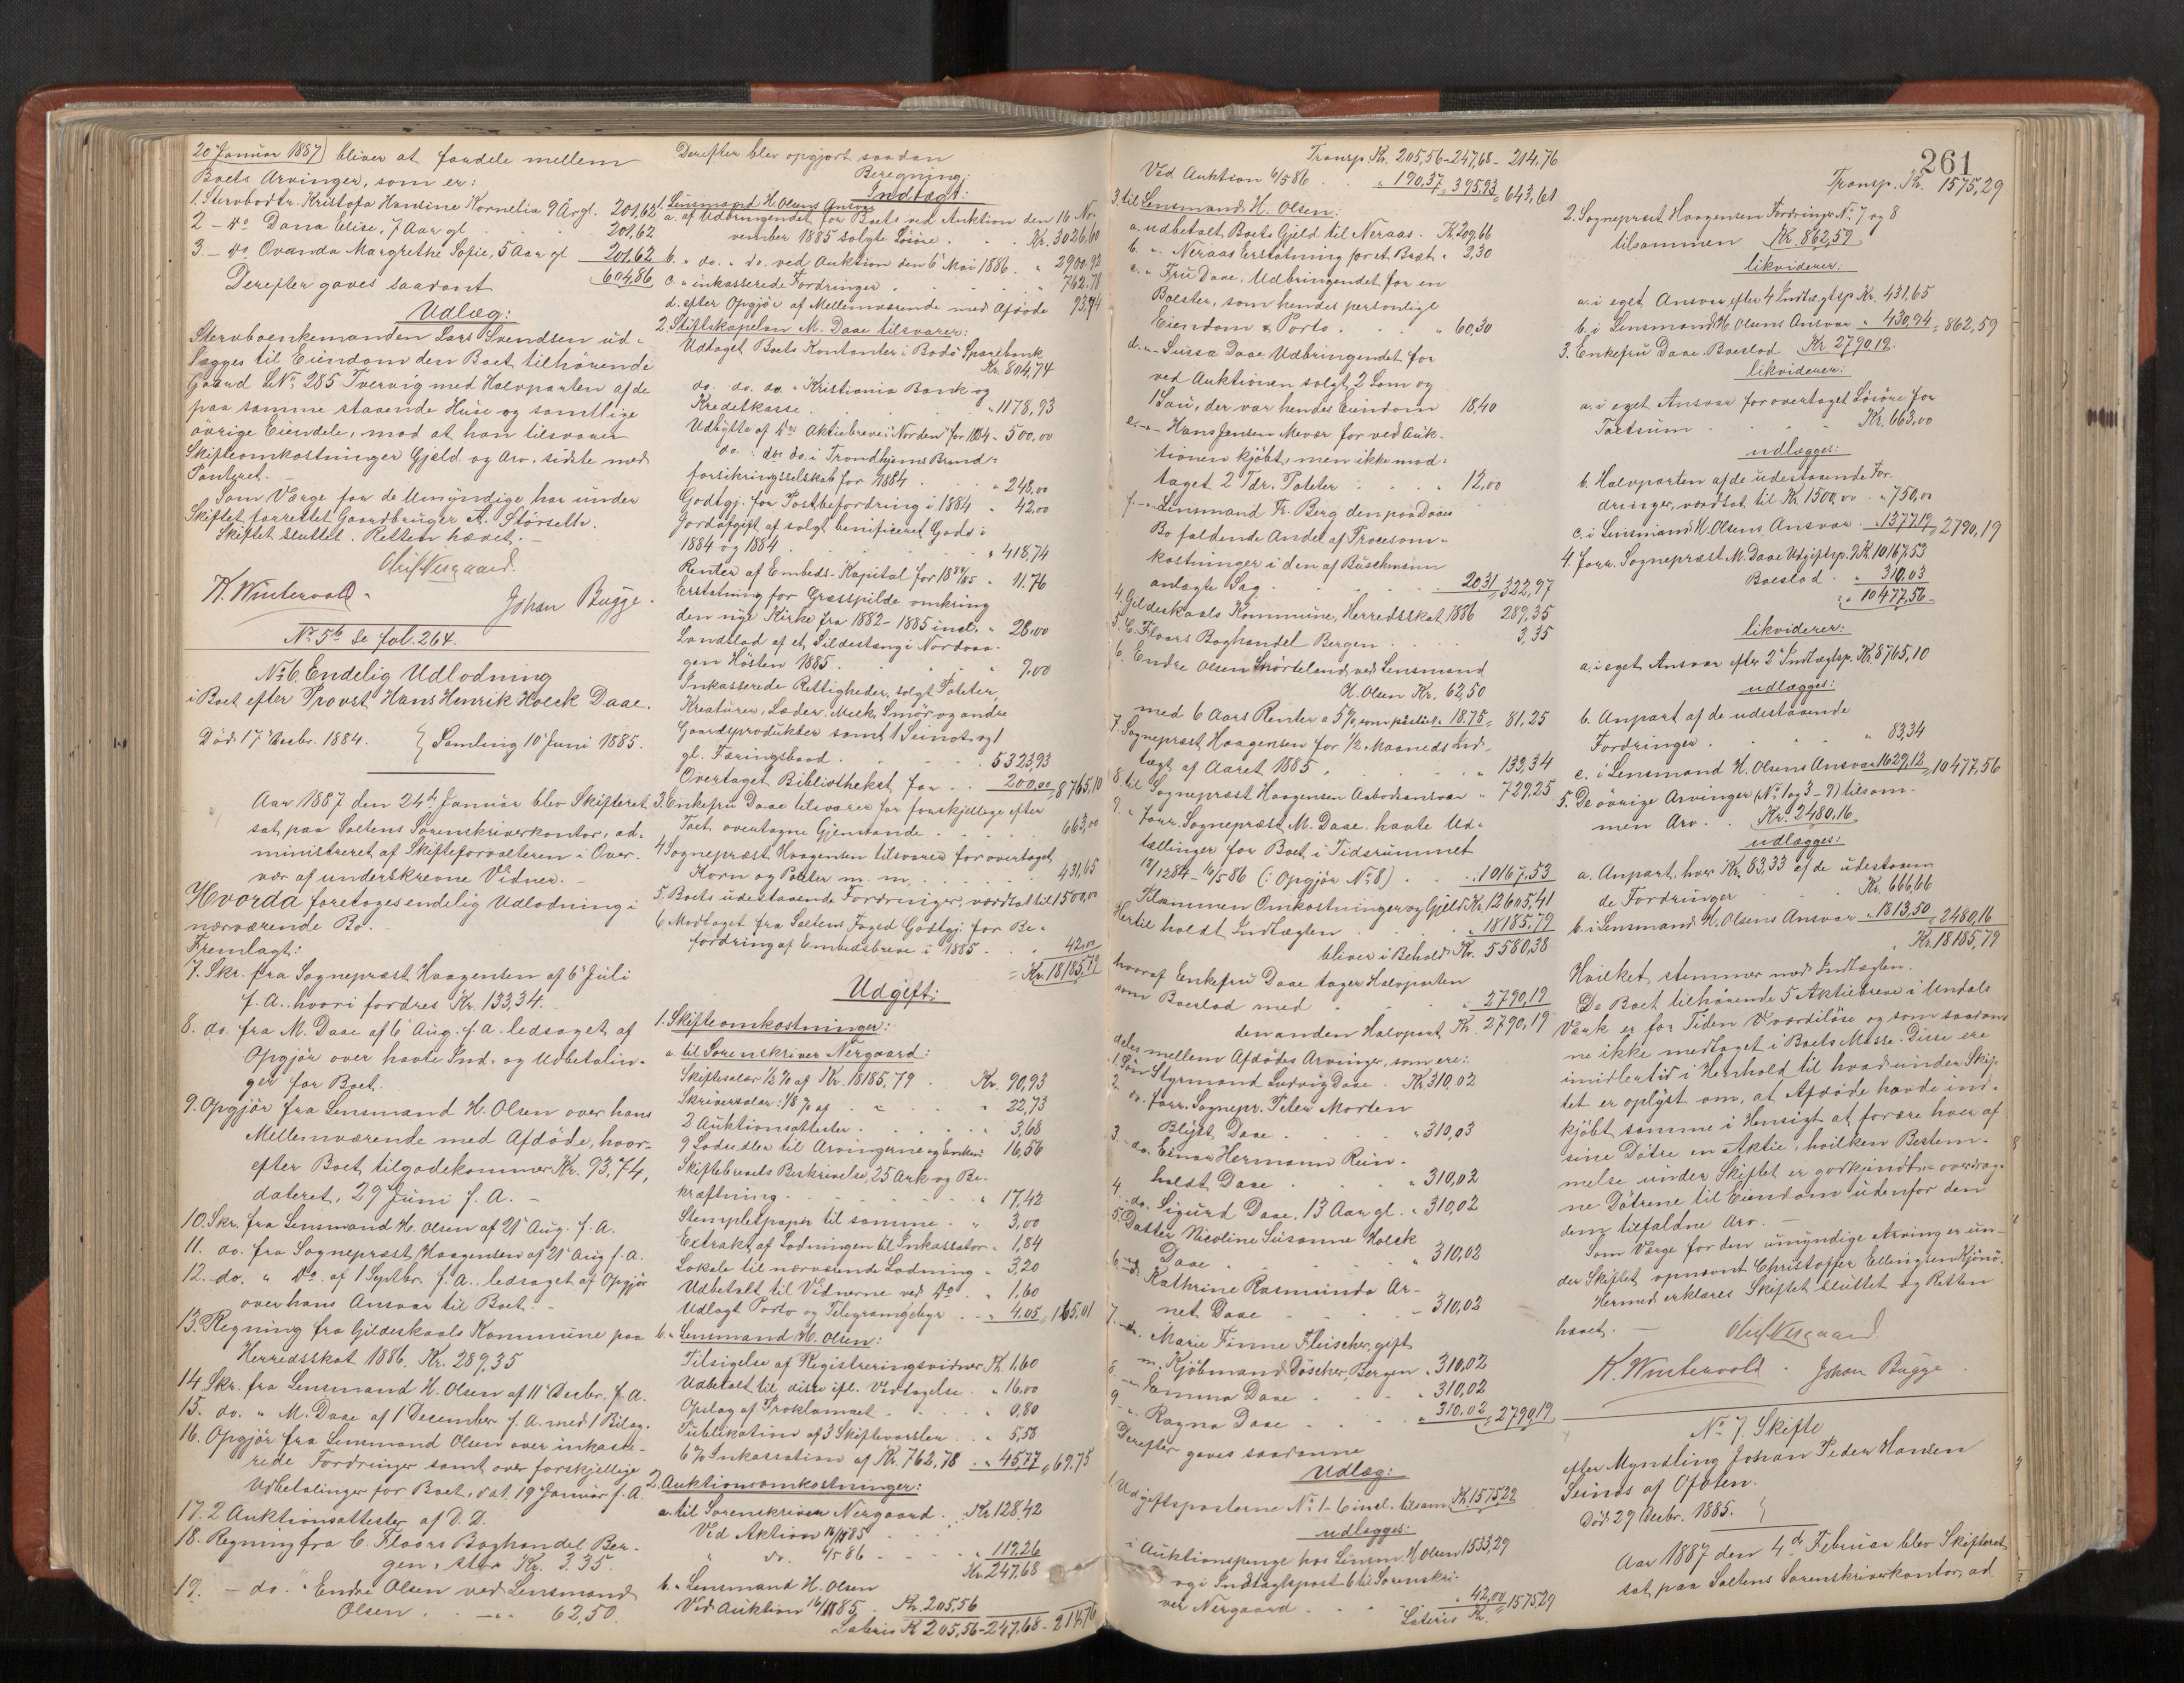 20 Januar 1887) bliver at fordele mellem
Boets Arvinger, som er:
1. Stervbodtr. Kristofa Hansine Kornelia 9 Aar gl. 201,62
2 - do Dana Elise, 7 Aar gl. 201,62
3. - do Ovanda Margrethe Sofie, 5 Aar gl. 201,62
604,86
Derefter gaves saadant
Udlæg:
Stervboenkemanden Lars Svendsen ud-
lægges til Eiendom den Boet tilhørende
Gaard L.No. 285 Tvervig med Halvparten af de
paa samme staaende Huse og samtlige
øvrige Eiendele, mod at han tilsvarer
Skifteomkostninger Gjæld og Arv, sidste med
Panteret.
Som Værge for de Umyndige har under
Skiftet forrettet Gaardbruger A. Störseth.
Skiftet sluttet. Retten hævet. -
Oluf Nergaard.
K. Wintervold. Johan Bugge.
No. 5b Se fol. 264.
No. 6. Endelig Udlodning
i Boet efter Provst Hans Henrik Holck Daae.
Död 17 Decbr. 1884. } Samling 10 Juni 1885.
Aar 1887 den 24de Januar blev Skifteret
sat paa Saltens Sorenskriverkontor, ad-
ministreret af Skifteforvalteren i Over-
vær af underskrevne Vidner. -
Hvorda foretoges endelig Udlodning i
nærværende Bo.
Fremlagt:
7. Skr. fra Sognepræst Haagensen af 6 Juli
f. A. hvori fordres Kr. 133,34.
8. do. fra M. Daae af 6 Aug. f. a. ledsaget af
Opgjör over havte Ind- og Udbetalin-
ger for Boet.
9. Opgjör fra Lensmand H. Olsen over hans
Mellemværende med Afdöde, hvor-
efter Boet tilgodekommer Kr. 93,74,
dateret, 29 Juni f. A. -
10. Skr. fra Lensmand H. Olsen af 21 Aug. f. A.
11. do. fra Sognepræst Haagensen af 21 Aug f. a.
12. do. " do. af 1 Septbr. f. A. ledsaget af Opgjör
over hans Ansvar til Boet. -
13. Regning fra Gildeskaals Kommune paa
Herredsskat 1886. Kr. 289,35
14 Skr. fra Lensmand H. Olsen af 11 Decbr. f. A.
15. do. " M. Daae af 1 December f. A. med 1 Bilag.
16. Opgjör fra Lensmand Olsen over inkasse-
rede Fordringer samt over forskjellige
Udbetalinger for Boet, dat. 19 Januar f. A.
17. 2 Auktionsattester af D. D.
18. Regning fra C. Floors Boghandel Ber-
gen, stor Kr. 3.35.
19. - do. " Endre Olsen ved Lensmand
Olsen. 62,50.
Derefter blev opgjort saadan
Beregning:
Indtægt:
1. Lensmand H. Olsens Ansvar
a. af Udbringendet for Boets ved Auktion den 16 No-
vember 1885 solgte Lösöre. Kr. 3026,60
b. " do. " do. ved Auktion den 6 Mai 1886. " 2900.92
c. " inkasserede Fordringer " 762.78
d. efter Opgjör af Mellemværende med Afdöde 93,74
2. Stiftskapelan M. Daae tilsvarer:
Uddaget Boets Kontanter i Bodö Sparebank
Kr. 804,74
do. do. do. " Kristiania Bank og
Kreditkasse. " 1178,93
Udbytte af Aktiebreve i "Norden" for 1884 - 500,00
do. do. do. i Trondhjems Brand-
forsikringsselskab for 1884 " 248,00
Godtgj. for Postbefordring i 1884 " 42,00
Jordafgift af solgt benificeret Gods i
1884 og 1884 " 418,74
Renter af Embeds-Kapital for 1884/85 " 11.76
Erstatning for Græsspilde omkring
den nye Kirke fra 1882-1885 incl. " 28.00
Landslod af et Sildestæng i Nordvaa-
gen Hösten 1885. " 7.00
Inkasserede Rettigheder, solgt Poteter,
Kreaturer, Læder, Melk, Smör og andre
Gaardsprodukter samt 1 Seinot og 1
gl. Færingsbaad. 5323,93
Overtaget Bibliotheket for 200,00 = 8765,10
3. Enkefru Daae tilsvarer for forskjellige efter
Taxt overtagne Gjenstande 663,00
4 Sognepræst Haagensen tilsvarer for overtaget
Korn og Poteter m. m. 431,65
5. Boets udestaaende Fordringer, værdsat til 1500,00
6. Modtaget fra Saltens Foged Godtgj. for Be-
fordring af Embedsbreve i 1885. 42,00
= Kr. 18185,79
Udgift:
1. Skifteomkostninger:
a. til Sorenskriver Nergaard:
Skiftesalær 1/2 % af Kr. 18185,79 Kr. 90,93
Skriversalær: 1/8 % af " 22,73
2 Auktionsattester " 3,68
9 Lodsedler til Arvingerne og Enken: 16,56
Skiftebrevets Beskrivelse, 25 Ark og Be-
kræftning " 17,42
Stemplet papir til samme " 3,00
Extrakt af Lodningen til Inkassator " 1,84
Lokale til nærværende Lodning " 3,20
Udbetalt til Vidnerne ved do " 1,60
Udlagt Porto og Telegramgebyr " 4,05 = 165,01
b. " Lensmand H. Olsen:
Tilsigelse af Registreringsvidner Kr. 1,60
Udbetalt til disse ifl. Vedtagelse " 16,00
Opslag af Proklamaet " 0,80
Publikation af 3 Skiftevarsler " 5,58
6 % Inkassation af Kr. 762,78 " 45,77 = 69.75
2. Auktionsomkostninger:
a. til Sorenskriver Nergaard
Ved Auktion 16/11 85 Kr. 128,42
" do. 6/5 86 " 119.26
Kr. 247.68
b. " Lensmand H. Olsen
Ved Auktion 16/11 85. Kr. 205,56
Lateris Kr 205,56-247,68-214,76
Transp. Kr. 205,56-247,68-214,76
Ved Auktion 6/5 86 " 190,37 = 395,93 = 643,61
3. til Lensmand H. Olsen:
a. udbetalt Boets Gjeld til Neraas. Kr. 209,66
b. " Neraas Erstatning for et Bræt " 2,30
c. " Fru Daae, Udbringendet for en
Bolster, som hendes personlige
Eiendom & Porto " 60,30
d. " Luisa Daae Udbringendet for
ved Auktionen solgt 2 Lam og
1 Sau, der var hendes Eiendom 18,40
e. " Hans Jensen Mevær for ved Auk-
tionen kjöbt, men ikke mod-
taget 2 Tdr. Poteter " 12,00
f. " Lensmand Fr. Berg den paa Daaes
Bo faldende Andel af Procesom-
kostninger i den af Buschmann
anlagte Sag 20.31 = 322,97
4. Gildeskaals Kommune, Herredsskat 1886 289,35
5. C. Floors Boghandel Bergen 3,35
6. Endre Olsen Snörteland ved Lensmand
H. Olsen Kr. 62,50
med 6 Aars Renter a 5%, som paalöbt 18.75 = 81,25
7. Sognepræst Haagensen for 1/2 Maaneds Ind-
tægt af Aaret 1885. " 133,34
8. til Sognepræst Haagensen Aabodsansvar " 729,25
9. " forr. Sognepræst M. Daae. havte Ud-
tællinger for Boet i Tidsrummet
18/12 84 - 16/5 86 (: Opgjör No. 8) 10167,53
Tilsammen Omkostninger og Gjeld Kr. 12605,41
Hertil holdt Indtægten 18185,79
bliver i Behold Kr. 5580,38
hvoraf Enkefru Daae tager Halvparten
som Boeslod med 2790,19
den anden Halvpart Kr. 2790,19
deles mellem Afdödes Arvinger, som ere:
1. Sön Styrmand Ludvig Daae Kr. 310,02
2. do. forr. Sognepr. Peter Morten
Blytt Daae " 310,03
3. do. Einar Hermann Rein-
holdt Daae " 310,02
4. do. Sigurd Daae, 13 Aar gl. " 310,02
5. Datter Nicoline Susanne Holck
Daae " 310,02
6. do. Kathrine Rasmunda Ar-
net Daae " 310,02
7. do. Marie Finne Fleischer, gift
m. Kjöbmand Döscher, Bergen " 310,02
8. " Emma Daae " 310,02
9. " Ragna Daae " 310.02 = 2790,19
Derefter gaves saadanne
Udlæg:
1. Udgiftsposterne No. 1-6 incl. tilsam. Kr. 1575,29
udlægges:
i Auktionspenge hos Lensm. H. Olsen 1533,29
og i Indtægtspost 6 til Sorenskri-
ver Nergaard " 42,00 = 1575,29
Lateris Kr.
261
Transp. Kr. 1575,29
2. Sognepræst Haagensen Fordringer No. 7 og 8
tilsammen Kr. 862,59
likviderer:
a. i eget Ansvar efter 4 Indtægtsp. Kr. 431,65
b. i Lensmand H. Olsens Ansvar " 430,94 = 862,59
3. Enkefru Daae Boeslod Kr 2790,19.
likviderer:
a. i eget Ansvar for overtaget Lösöre for
Taxtsum Kr. 663,00
udlægges:
b. Halvparten af de udestaaende For-
dringer, værdsat til Kr. 1500,00 " 750,00
c. i Lensmand H. Olsens Ansvar " 1377,19 = 2790,19
4. forr. Sognepræst M. Daae Udgiftsp. 9 Kr. 10167,53
Boeslod " 310,03
" 10477,56
likviderer:
a. i eget Ansvar efter 2 Indtægtsp. Kr. 8765,10
udlægges:
b. Anpart af de udestaaende
Fordringer " 83,34
c. i Lensmand H. Olsens Ansvar 1629,12 = 10477,56
5. De övrige Arvinger (No. 1 og 3-9) tilsam-
men Arv. Kr. 2480,16
udlægges:
a. Anpart, hver Kr. 83,33 af de udestaaen-
de Fordringer Kr. 666,66
b. i Lensmand H. Olsens Ansvar " 1813,50 = 2480,16
Kr. 18185,79
Hvilket stemmer med Indtægten.
De Boet tilhörende 5 Aktiebreve i Undals
Værk er for Tiden værdilöse og som saadan-
ne ikke medtaget i Boets Masse. Disse ere
imidlertid i Henhold til hvad under Skif-
tet er oplyst om, at Afdöde havde ind-
kjöbt samme i Hensigt at forære hver af
sine Dötre en Aktie, hvilken Bestem-
melse under Skiftet er godkjendt, overdrag-
ne Dötrene til Eiendom udenfor den
dem tilfaldne Arv. -
Som Værge for den umyndige Arving er un-
der Skiftet opnævnt Christoffer Ellingsen Kjönö.
Hermed erklæres Skiftet sluttet og Retten
hævet. -
Oluf Nergaard
K. Wintervold. Johan Bugge.
No. 7. Skifte
efter Myndling Johan Peder Hansen
Seines af Ofoten.
Död 29 Decbr. 1885. }
Aar 1887 den 4de Februar blev Skifteret
sat paa Saltens Sorenskriverkontor, ad